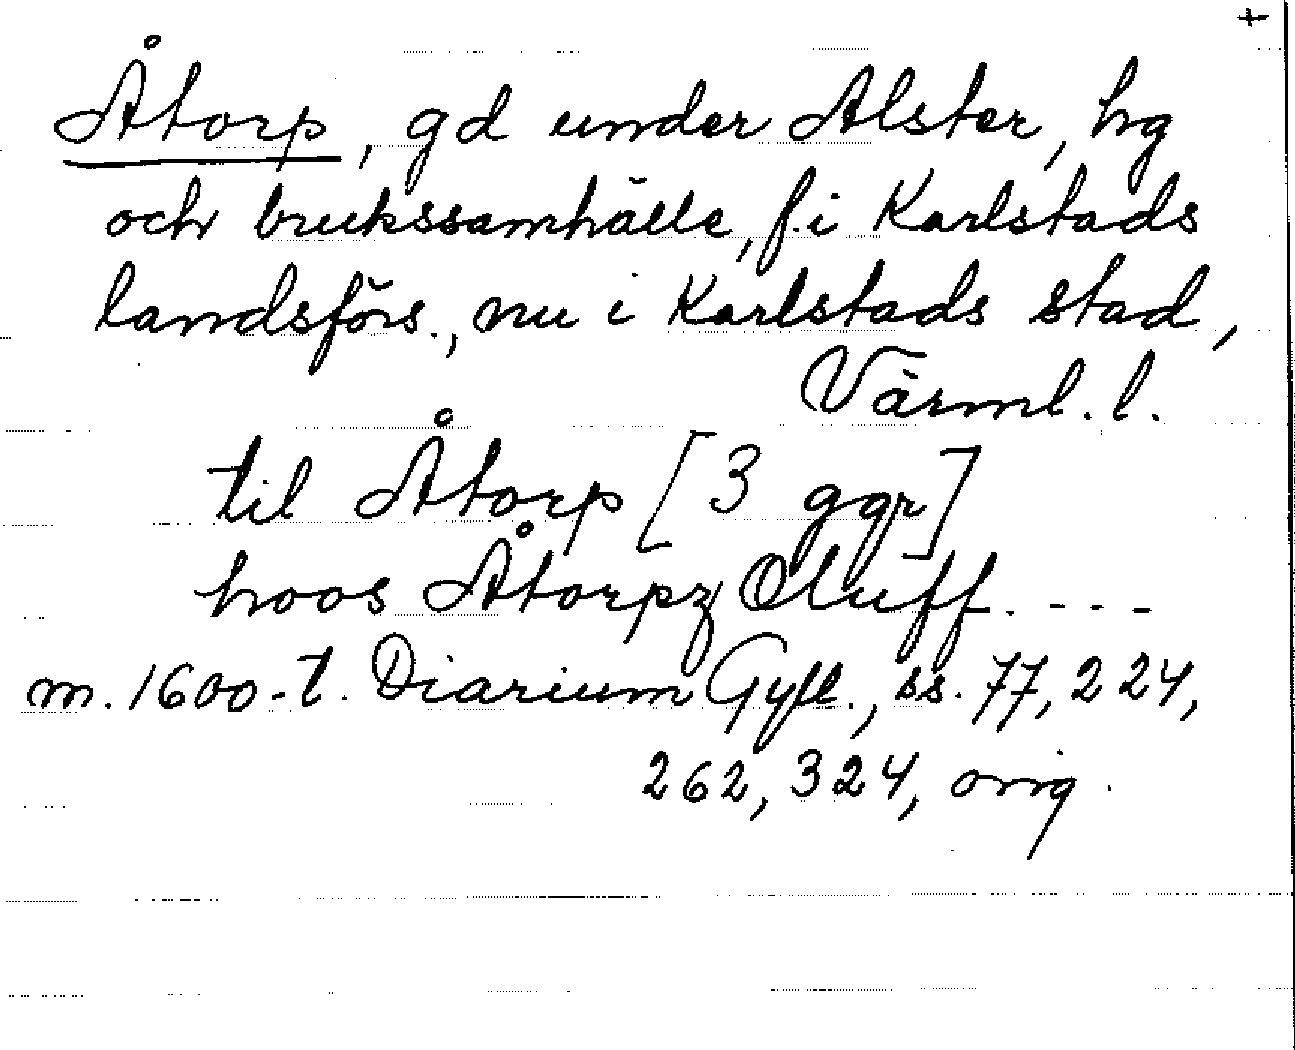 +
Åtorp, gd under Alster, hg
och brukssamhälle, f. i Karlstads
landsförs., nu i Karlstads stad,
Värml. l.
til Åtorp [3 ggr]
hoos Åtorpz Oluff. - - -
m. 1600-t. Diarium Gyll., ss. 77, 224,
262, 324, orig.